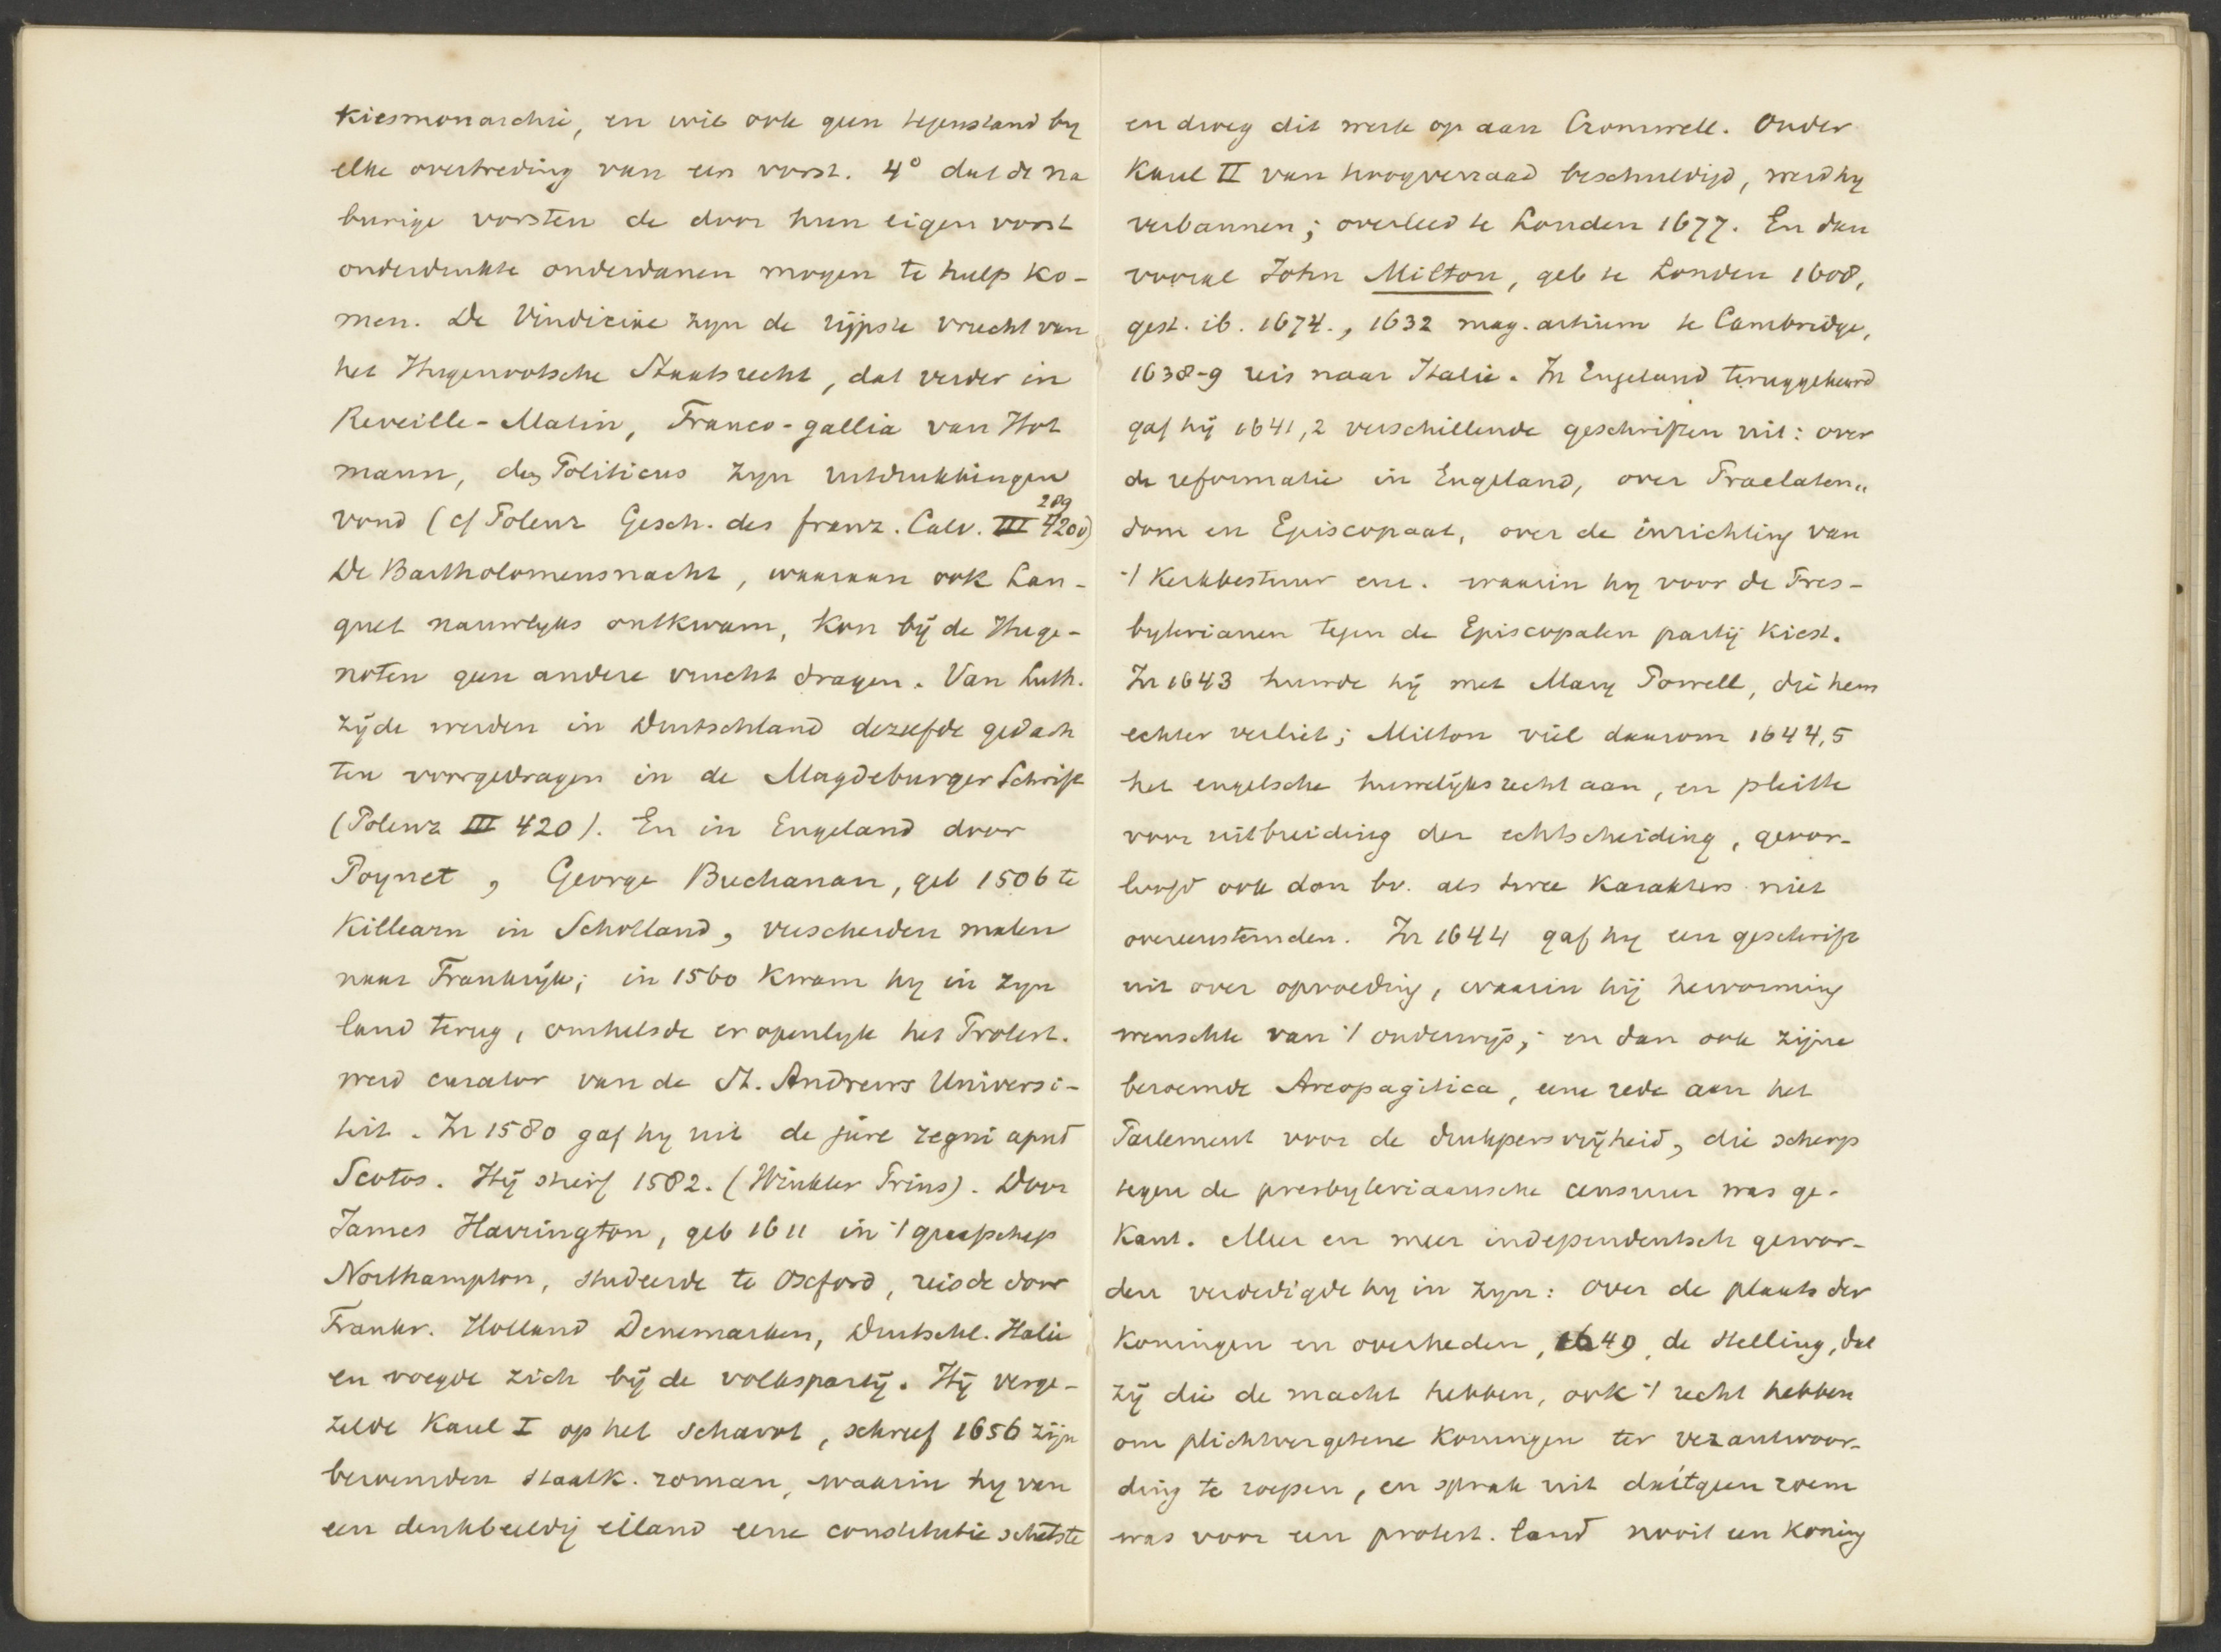 kiesmonarchie, en wil ook geen tegenstand by
elke overtreding van een vorst. 4° dat de na
burige vorsten de door hun eigen vorst
onderdrukte onderdanen mogen te hulp ko-
men. De Vindiciae zyn de rijpste vrucht van
het Hugenootsche Staatsrecht, dat verder in
Reveille-Matin, Franco-gallia van Hot
mann, des Politicus zyn uitdrukkingen
289
vond (cf Polenz Gesch. des franz. Calv. III 420v)
De Bartholomeusnacht, waaraan ook Lan-
guet nauwlyks ontkwam, kon bij de Huge-
noten geen andere vrucht dragen. Van Luth.
zijde werden in Duitschland dezelfde gedach
ten voorgedragen in de Magdeburger Schrift
(Polenz III 420). En in Engeland door
Poynet, George Buchanan, geb 1506 te
Killearn in Schotland, verscheiden malen
naar Frankrijk; in 1560 kwam hy in zyn
land terug, omhelsde er openlyk het Protest.
werd curator van de St. Andrews Universi-
teit. In 1580 gaf hy uit de jure regni apud
Scotos. Hij stierf 1582. (Winkler Prins). Door
James Harrington, geb 1611 in 't graafschap
Northampton, studeerde te Oxford, reisde door
Frankr. Holland Denemarken, Duitschl. Italie
en voegde zich bij de volkspartij. Hij verge-
zelde Karel I op het schavot, schreef 1656 zijn
beroemden staatk. roman, waarin hy van
een denkbeeldig eiland eene constitutie schetste
en droeg dit werk op aan Cromwell. Onder
Karel II van hoogverraad beschuldigd, werd hy
verbannen; overleed te Londen 1677. En dan
vooral John Milton, geb te Londen 1608,
gest. ib. 1674., 1632 mag. artium te Cambridge,
1638-9 reis naar Italie. In Engeland teruggekeerd
gaf hij 1641,2 verschillende geschriften uit: over
de reformatie in Engeland, over Praelaten„
dom en Episcopaat, over de inrichting van
't kerkbestuur enz. waarin hy voor de Pres-
byterianen tegen de Episcopalen partij kiest.
In 1643 huwde hij met Mary Powell, die hem
echter verliet; Milton viel daarom 1644,5
het engelsche huwelijksrecht aan, en pleitte
voor uitbreiding der echtscheiding, geoor-
loofd ook dan bv. als twee karakters niet
overeenstemden. In 1644 gaf hy een geschrift
uit over opvoeding, waarin hij hervorming
wenschte van 't onderwijs; en dan ook zijne
beroemde Areopagitica, eene rede aan het
Parlement voor de drukpersvrijheid, die scherp
tegen de presbyteriaansche censuur was ge-
kant. Meer en meer independentsch gewor-
den verdedigde hy in zyn: over de plaats der
koningen en overheden, 1649, de stelling, dat
zij die de macht hebben, ook 't recht hebben
om plichtvergetene koningen ter verantwoor-
ding te roepen, en sprak uit dat 't geen roem
was voor een protest. land nooit een koning